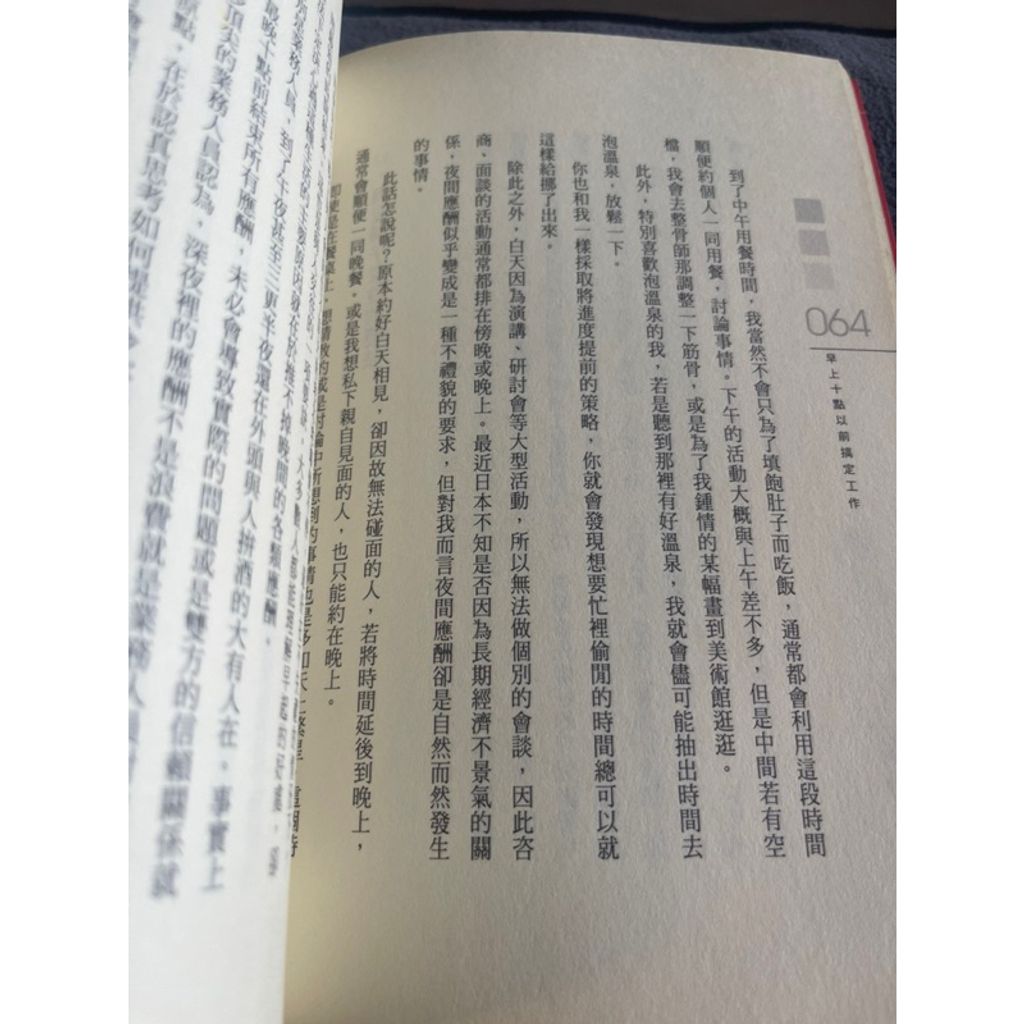 064
早上十點以前搞定工作
到了中午用餐時間，我當然不會只為了填飽肚子而吃飯，通常都會利用這段時間
順便約個人一同用餐，討論事情。下午的活動大概與上午差不多，但是中間若有空
檔，我會去整骨師那調整一下筋骨，或是為了我鍾情的某幅畫到美術館逛逛。
此外，特別喜歡泡溫泉的我，若是聽到那裡有好溫泉，我就會儘可能抽出時間去
泡溫泉，放鬆一下。
你也和我一樣採取將進度提前的策略，你就會發現想要忙裡偷閒的時間總可以就
這樣給挪了出來。
除此之外，白天因為演講、研討會等大型活動，所以無法做個別的會談，因此咨
商、面談的活動通常都排在傍晚或晚上。最近日本不知是否因為長期經濟不景氣的關
係，夜間應酬似乎變成是一種不禮貌的要求，但對我而言夜間應酬卻是自然而然發生
的事情。
此話怎說呢？原本約好白天相見，卻因故無法碰面的人，若將時間延後到晚上，
通常會順便一同晚餐。或是我想私下親自見面的人，也只能約在晚上。
即使是在餐桌上，想請教的或是討論中所想到的事情也是多如天上繁星，這個時
業務人員，到了午夜甚至三更半夜還在外頭與人拚酒的大有人在。事實上
最晚十點前結束所有應酬，未必會導致實際的問題或是雙方的信賴關係就
頂尖的業務人員認為，深夜裡的應酬不是浪費就是業務人
點，在於認真思考如何提供